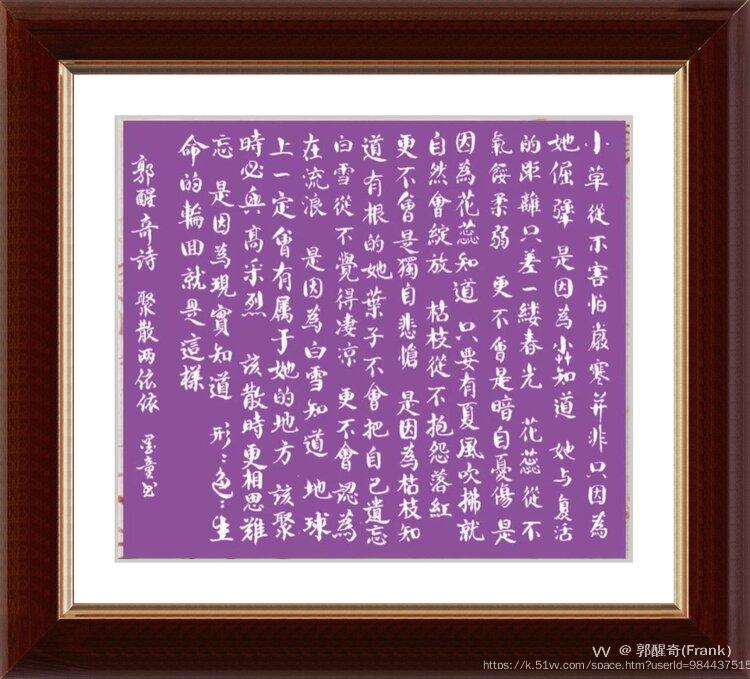 小草從不害怕嚴寒并非只因為
她倔犟 是因為小草知道 她与复活
的距離只差一縷春光 花蕊從不
氣餒柔弱 更不會是暗自憂傷 是
因為花蕊知道 只要有夏風吹拂就
自然會綻放 枯枝從不抱怨落紅
更不會是獨自悲愴 是因為枯枝知
道有根的她葉子不會把自己遺忘
白雪從不覺得凄凉 更不會認為
在流浪 是因為白雪知道 地球
上一定會有属于她的地方 該聚
時必興高采烈 該散時更相思難
忘 是因為現實知道 形:色:生
命的輪回就是這樣
郭醒奇詩 聚散两依依 墨童书
VV @ 郭醒奇(Frank)
https://k.51vv.com/space.htm?userId=984437515